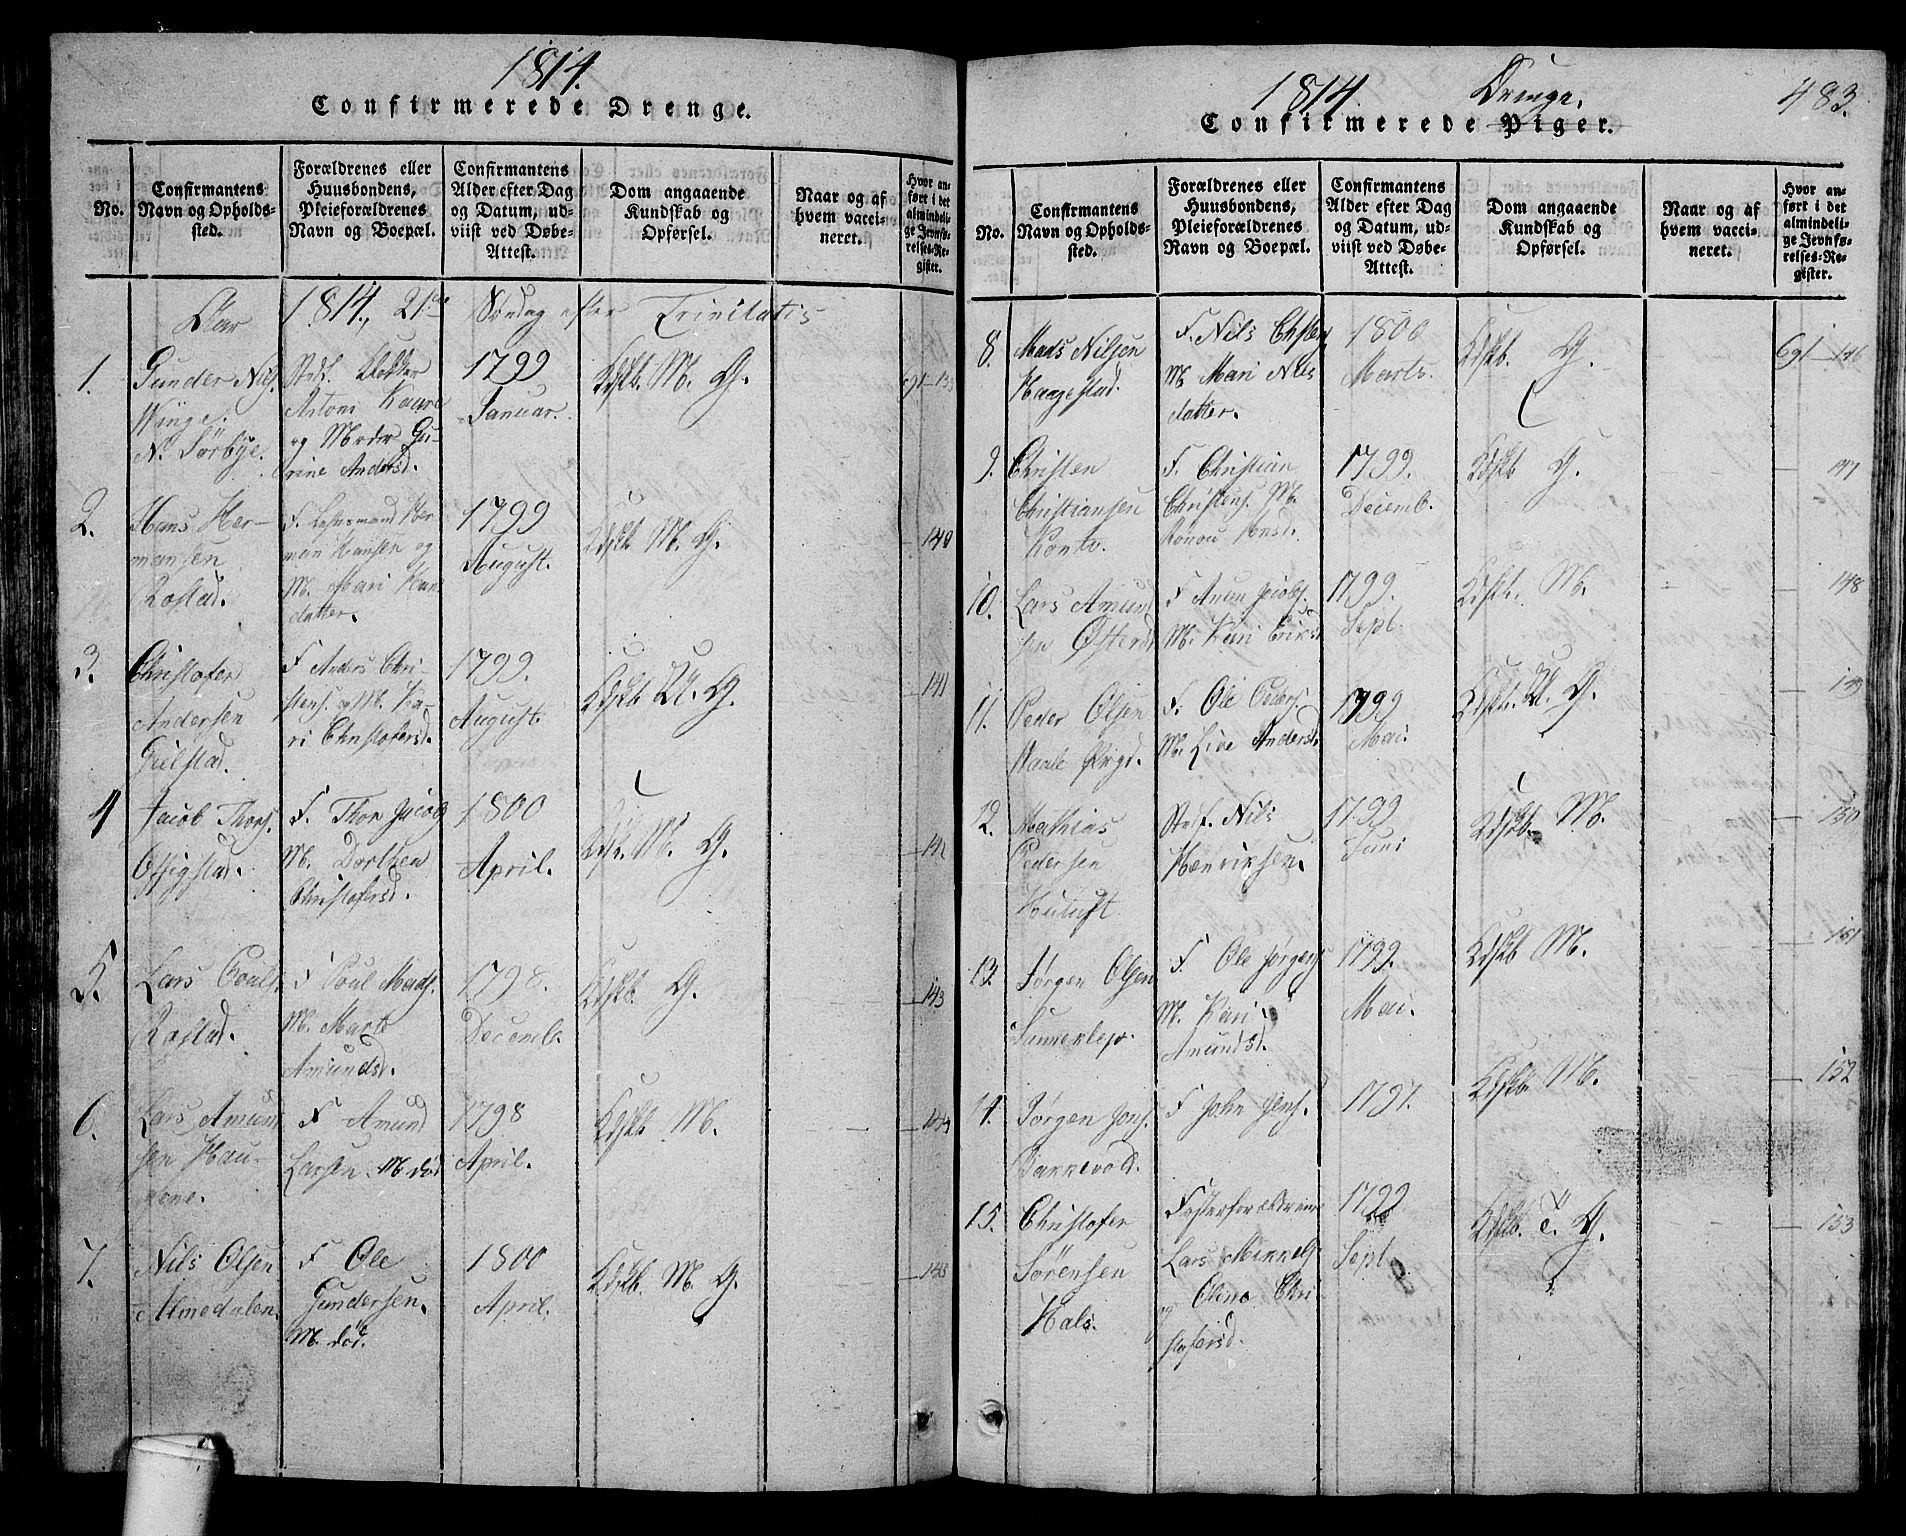 1814.
Confirmerede Drenge.
No.
Confirmantens
Navn og Opholds-
sted.
Forældrenes eller
Huusbondens,
Pleieforældrenes
Navn og Boepæl.
Confirmantens
Alder efter Dag
og Datum, ud-
viist ved Døbe-
Attest.
Dom angaaende
Kundskab og
Opførsel.
Naar og af
hvem vacci-
neret.
Hvor an-
ført i det
almindeli-
ge Jevnfø-
relses-Re-
gister.
Aar 1814, 21de Søndag efter Trinitatis
1.
Gunder Nils.
Winge.
N. Sørbye.
Stedf. Klokker
Antoni Kaure
og Moder Gu-
rine Andersd.
1799
Januar.
Kdskb. M. G.
691-139
2.
Hans Her-
mansen
Rostad.
F. Lehnsmand Her-
man Hansen og
M. Mari Han
datter.
1799
August.
Kdskb. M. G.
140
3.
Christofer
Andersen
Gielstad.
F. Anders Chri-
stens. og M. Ka-
ri Christofersd.
1799.
August.
Kdskb. G.
141
4
Jacob Thors.
F. Thor Jacob
M. Dorthea
Christofersd.
1800
April.
Kdsk. M. G.
142
5.
Lars Pouls.
Rostad.
F Poul Mads.
M. Marte
Amundsd.
1798.
Decemb.
Kdskb. G.
143
6.
Lars Amun
sen Hau-
gene.
F Amund
Larsen. M død
1798
April.
Kdskb M.
144
7.
Nils Olsen
Almedalen.
F Ole
Gundersen.
M. død.
1800
April.
Kdskb. M. G.
145
1814.
Drenge.
483.
Confirmerede Piger.
No.
Confirmantens
Navn og Opholds-
sted.
Forældrenes eller
Huusbondens,
Pleieforældrenes
Navn og Boepæl.
Confirmantens
Alder efter Dag
og Datum, ud-
viist ved Døbe-
Attest.
Dom angaaende
Kundskab og
Opførsel.
Naar og af
hvem vacci-
neret.
Hvor an-
ført i det
almindeli-
ge Jevnfø-
relses-Re-
gister.
8.
Mads Nilsen
Haagestad.
F. Nils
M. Mari Nils
datter.
1800
Marts.
Kdskb. G.
691-146
9.
Christen
Christiansen
F. Christian
Christens. M.
1799.
Decemb.
Kdskb G.
147
10.
Lars Amund
sen
F Amun Jacobs.
M. Kari Eriksd
1799.
Sept.
Kdskb. M.
148
11.
Peder Olsen
F. Ole Peders.
M. Live Andersd.
1799
Mai.
Kdskb. G.
149
12.
Mathias
Pedersen
Stedf. Nils
Henriksen.
1799
Juni
Kdskb. M.
150
13.
Jørgen Olsen
F. Ole Jørgens
M. Kari
Amundsd.
1799.
Mai.
Kdskb M.
151
14.
Jørgen Jons.
F John Jens.
1797.
Kdskb M.
152
15.
Christofer
Sørensen
Hals.
Fosterforældrene
Lars
og Oline Chri
stofersd.
1799
Sept
Kdskb. G.
153